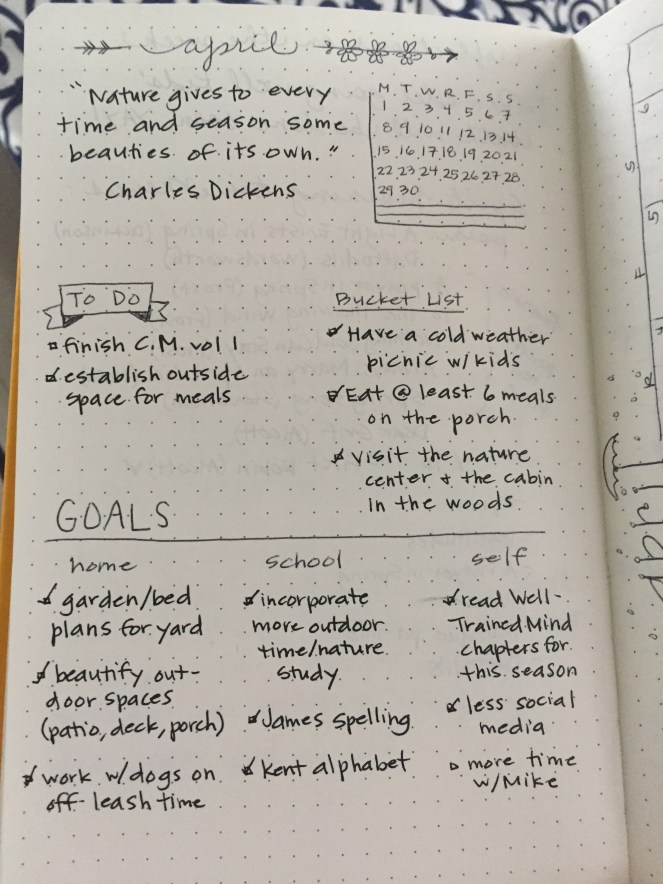 april
"Nature gives to every
time and season some
beauties of its own."
Charles Dickens
M. T. W. R. F. S. S.
1 2 3 4 5 6 7
8 9 10 11 12 13 14
15 16 17 18 19 20 21
22 23 24 25 26 27 28
29 30
To Do
finish C.M. vol 1
establish outside
space for meals
Bucket List
Have a cold weather
picnic w/kids
Eat @ least 6 meals
on the porch
visit the nature
center & the cabin
in the woods
GOALS
home
garden/bed
plans for yard
beautify out-
door spaces
(patio, deck, porch)
work w/dogs on
off-leash time
school
incorporate
more outdoor
time/nature
study
James spelling
Kent alphabet
self
read Well-
Trained Mind
chapters for
this season
less social
media
more time
w/Mike